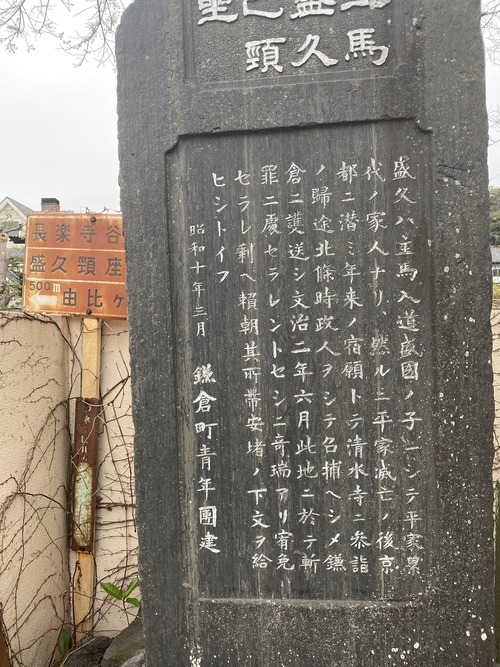 主馬
盛久
之頸
座
盛久ハ主馬入道盛國ノ子ニシテ平家累
代ノ家人ナリ、然ルニ平家滅亡ノ後京
都ニ潜ミ年来ノ宿願トテ清水寺ニ參詣
ノ歸途北條時政人ヲシテ召捕ヘシメ鎌
倉ニ護送シ文治二年六月此地ニ於テ斬
罪ニ處セラレントセシニ奇瑞アリ宥免
セラレ剰ヘ賴朝其所帶安堵ノ下文ヲ給
ヒシトイフ
昭和十年三月 鎌倉町青年團建
長楽寺谷
盛久頸座
500m
由比ヶ